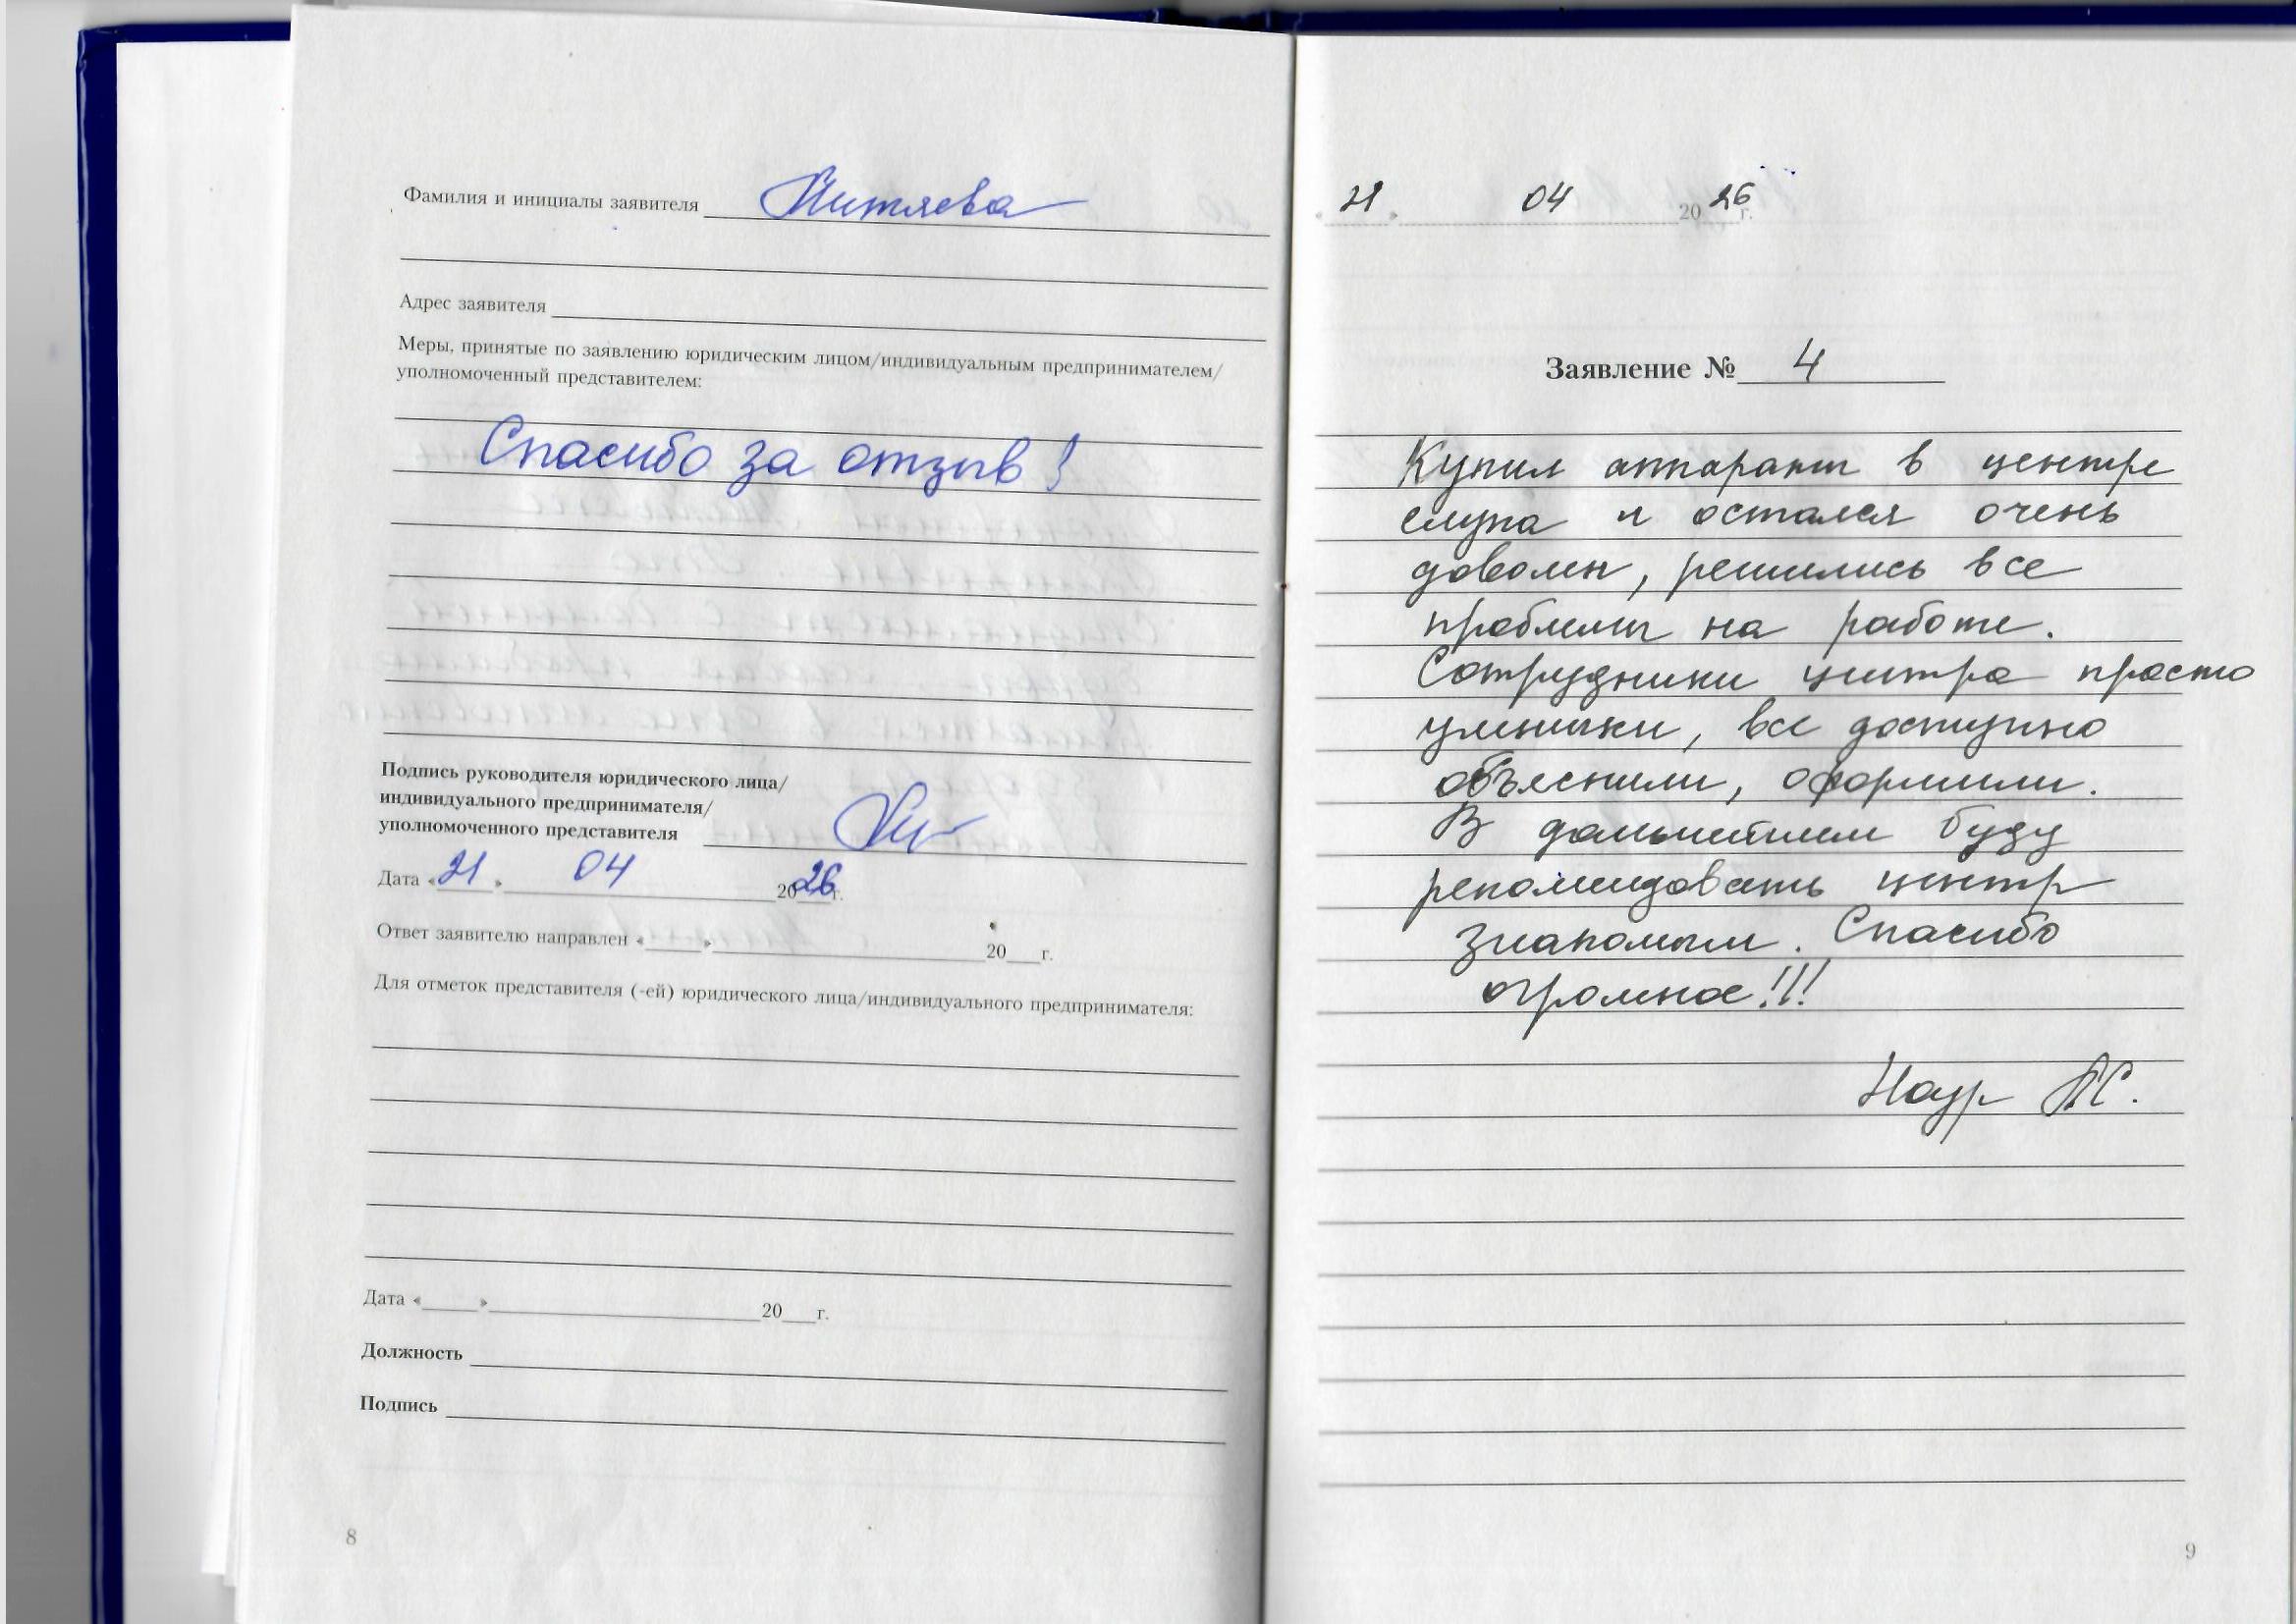 Фамилия и инициалы заявителя Нитяева
Адрес заявителя
Меры, принятые по заявлению юридическим лицом/индивидуальным предпринимателем/
уполномоченный представителем:
Спасибо за отзыв!
Подпись руководителя юридического лица/
индивидуального предпринимателя/
уполномоченного представителя
Дата «21» 04 2026г.
Ответ заявителю направлен «____» 20___г.
Для отметок представителя (-ей) юридического лица/индивидуального предпринимателя:
Дата «____» 20___г.
Должность
Подпись
8
«21» 04 2026г.
Заявление № 4
Купил аппарат в центре
слуха и остался очень
доволен, решились все
проблемы на работе.
Сотрудники центра просто
умнички, все доступно
объяснили, оформили.
В дальнейшем буду
рекомендовать центр
знакомым. Спасибо
огромное!!!
Наур
9